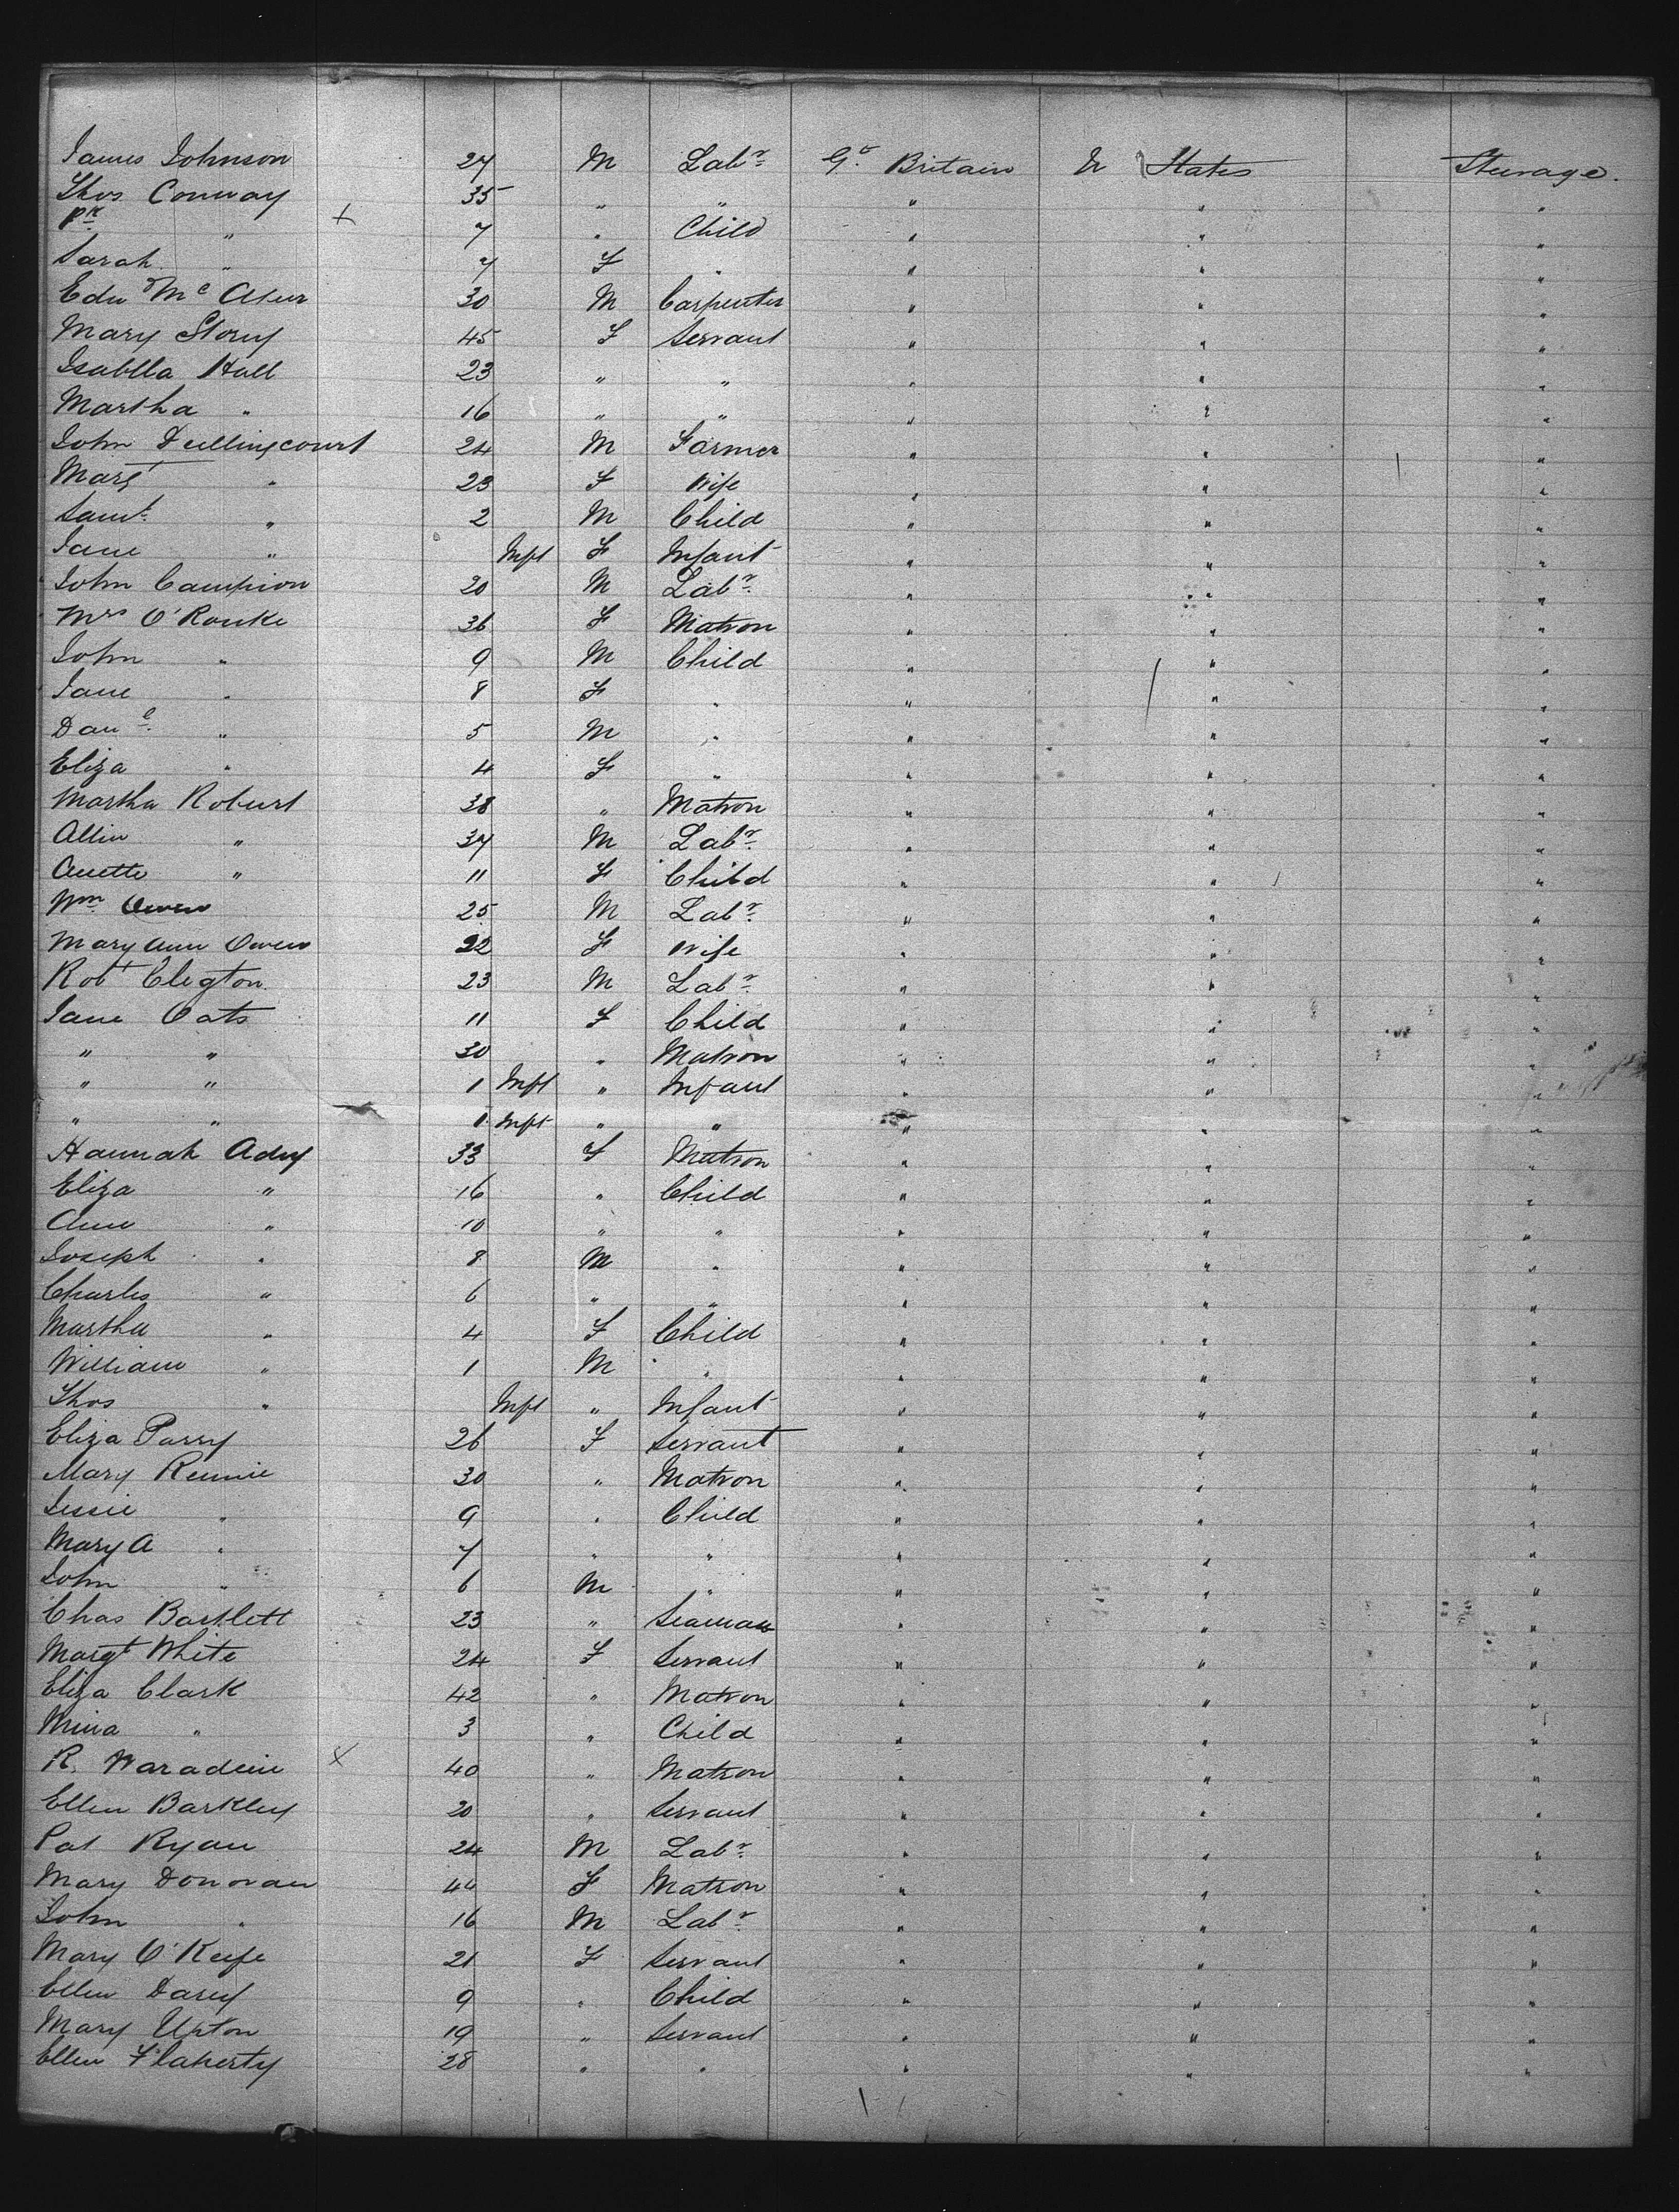 James Johnson 27 M Labr. Gt. Britain U States Steerage.
Thos Conway 35 " " " " "
Pk " + 7 " Child " " "
Sarah " 7 F " " " "
Edwd Mc Ateer 30 M Carpenter " " "
Mary Storey 45 F Servant " " "
Isablla Hall 23 " " " " "
Martha " 16 " " " " "
John Dullingcourt 24 M Farmer " " "
Margt " 23 F Wife " " "
Saml. " 2 M Child " " "
Jane " Inft F Infant " " "
John Campion 20 M Labr. " " "
Mrs O'Rouke 36 F Matron " " "
John " 9 M Child " " "
Jane " 8 F " " " "
Danl. " 5 M " " " "
Eliza " 4 F " " " "
Martha Robert 38 " Matron " " "
Allin " 37 M Labr. " " "
Anette " 11 F Child " " "
Wm Owen 25 M Labr. " " "
Mary Ann Owen 22 F Wife " " "
Robt Clegton 23 M Labr. " " "
Jane Oats 11 F Child " " "
" " 30 " Matron " " "
" " 1 Inft " Infant " " "
" " 1 Inft " " " " "
Hannah Adey 33 F Matron " " "
Eliza " 16 " Child " " "
Ann " 10 " " " " "
Joseph " 8 M " " " "
Charles " 6 " " " " "
Martha " 4 F Child " " "
William " 1 M " " " "
Thos " Inft " Infant " " "
Eliza Parry 26 F Servant " " "
Mary Rennie 30 " Matron " " "
Jessie " 9 " Child " " "
Mary A " 7 " " " " "
John " 6 M " " " "
Chas Bartlett 23 " Seaman " " "
Margt White 24 F Servant " " "
Eliza Clark 42 " Matron " " "
Mina " 3 " Child " " "
R. Waradine x 40 " Matron " " "
Ellen Barkley 20 " Servant " " "
Pat Ryan 24 M Labr. " " "
Mary Donovan 40 F Matron " " "
John " 16 M Labr. " " "
Mary O'Keefe 21 F Servant " " "
Ellen Darcy 9 " Child " " "
Mary Upton 19 " Servant " " "
Ellen Flaherty 28 " " " " "